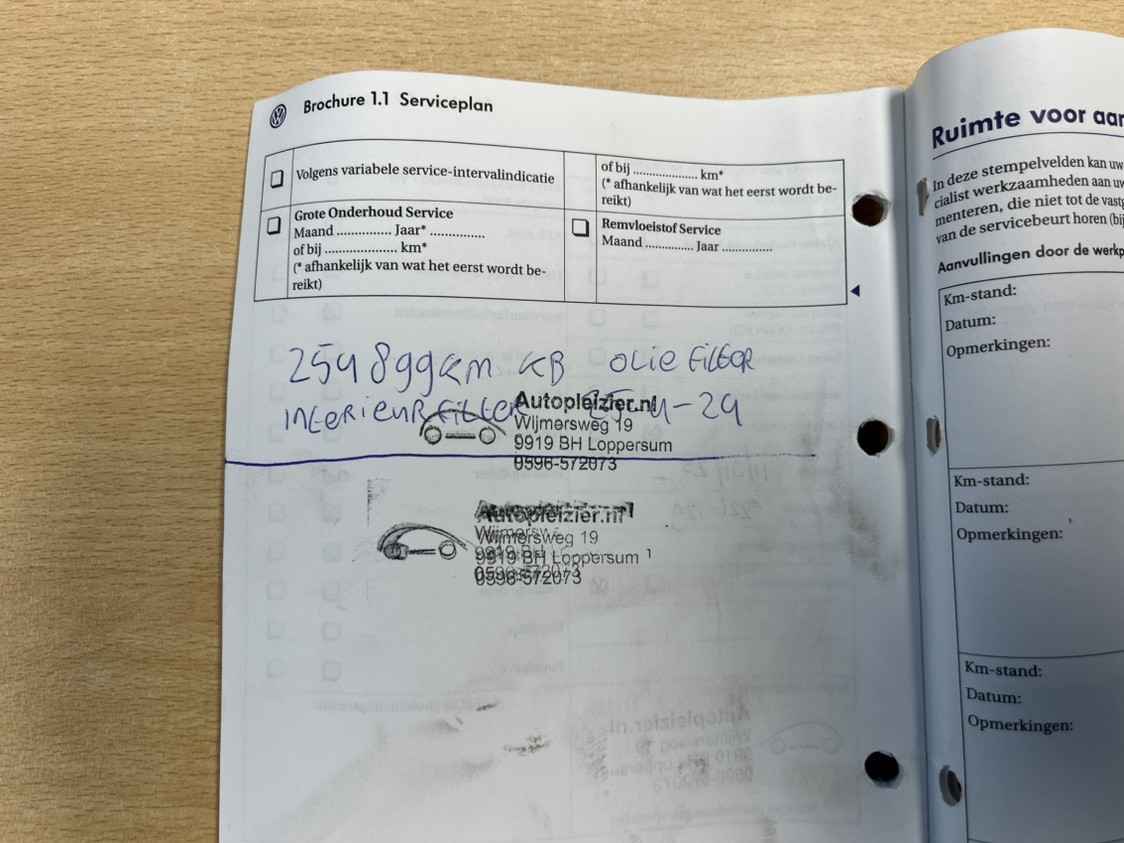 Brochure 1.1 Serviceplan
Volgens variabele service-intervalindicatie
of bij .................... km*
(* afhankelijk van wat het eerst wordt be-
reikt)
Grote Onderhoud Service
Maand ................ Jaar* ................
of bij ..................... km*
(* afhankelijk van wat het eerst wordt be-
reikt)
Remvloeistof Service
Maand .............. Jaar ...............
km KB OLIE FILTER
INTERIEUR FILTER
Autopleizier.nl
Wijmersweg 19
9919 BH Loppersum
0596-572073
Autopleizier.nl
Wijmersweg 19
9919 BH Loppersum
0596-572073
Ruimte voor
In deze stempelvelden kan uw
cialist werkzaamheden aan
menteren, die niet tot de
van de servicebeurt horen
Aanvullingen door de
Km-stand:
Datum:
Opmerkingen:
Km-stand:
Datum:
Opmerkingen:
Km-stand:
Datum:
Opmerkingen: